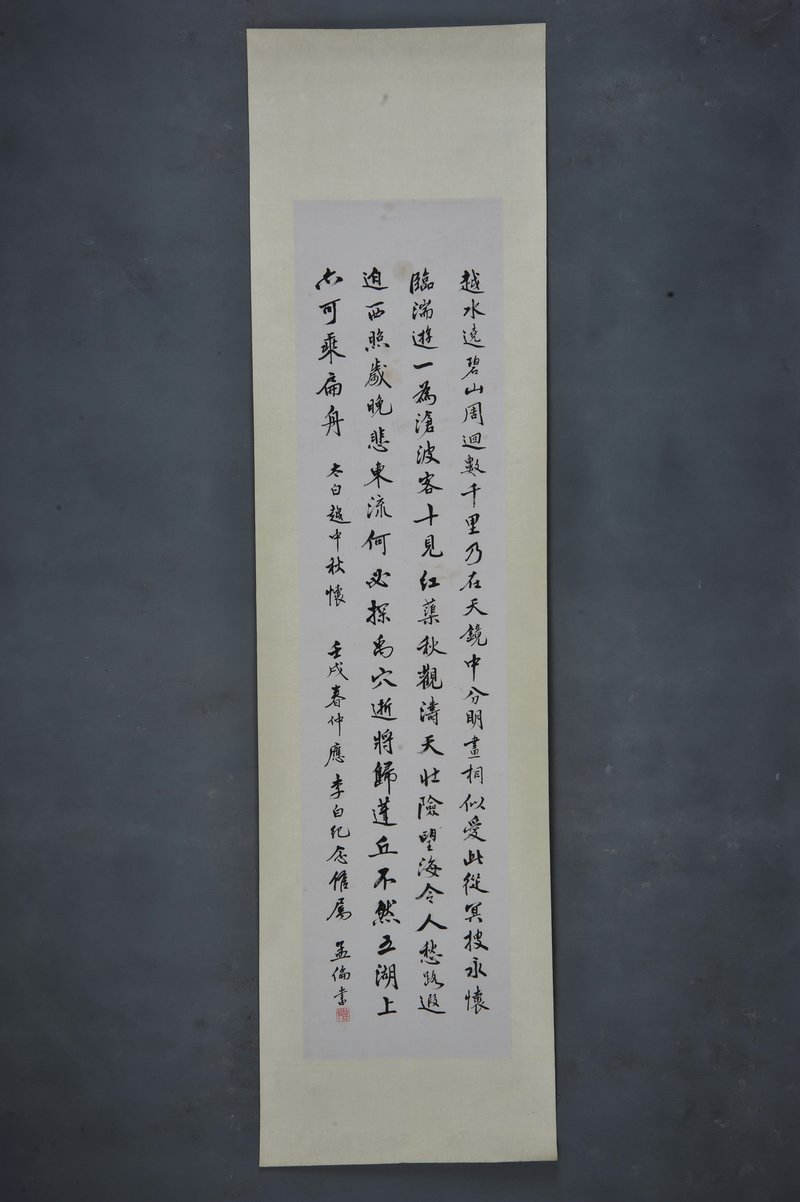 越水遶碧山周迴數千里乃在天鏡中分明畫相似愛此從冥搜永懷
臨湍遊一為滄波客十見紅蕖秋觀濤天壯險望海令人愁路遐
迫西照歲晚悲東流何必探禹穴逝將歸蓬丘不然五湖上
亦可乘扁舟 太白越中秋懷 壬戌春仲應李白紀念館屬 孟倫書